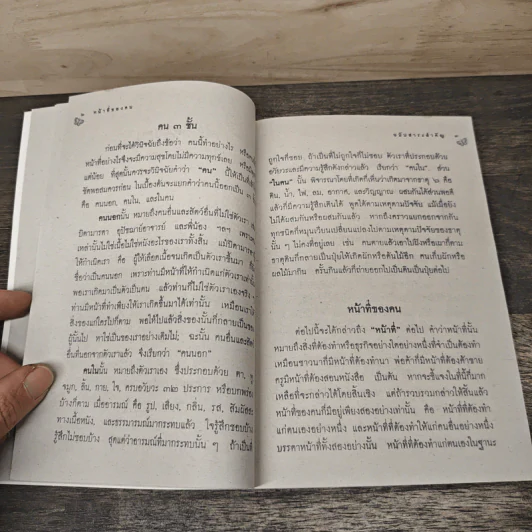 หน้าที่ของคน
คน ๓ ชั้น
ก่อนที่จะได้วินิจฉัยถึงข้อว่า คนนี้ทำอย่างไร หรือ
หน้าที่อย่างไรซึ่งจะมีความสุขโดยไม่มีความทุกข์เลย หรือ
แต่น้อย ที่สุดนั้นควรจะวินิจฉัยคำว่า "คน" นี้ให้เป็นที่
ชัดพอสมควรก่อน ในเบื้องต้นจะแยกคำว่าคนนี้ออกเป็น ๓
คือ คนนอก, คนใน, และในคน
คนนอกนั้น หมายถึงคนอื่นและสัตว์อื่นที่ไม่ใช่ตัวเรา
บิดามารดา อุปัชฌาย์อาจารย์ และพี่น้อง ฯลฯ เพราะ
เหล่านั้นไม่ใช่เนื้อไม่ใช่หนังอะไรของเราทั้งสิ้น แม้บิดามารดา
ให้กำเนิดเรา คือ ผู้ให้เลือดเนื้อจนเกิดเป็นตัวเราขึ้นมา
ชื่อว่าเป็นคนนอก เพราะท่านมีหน้าที่ให้กำเนิดแก่ตัวเราเท่านั้น
พอเราเกิดมาเป็นตัวเป็นคน แล้วท่านก็ไม่ใช่ตัวเราเองจริง
ท่านมีหน้าที่ทำเพียงให้เราเกิดขึ้นมาได้เท่านั้น เหมือนเรา
สิ่งของแก่ใครไปก็ตาม พอให้ไปแล้วสิ่งของนั้นก็กลายเป็นของ
ผู้นั้นไป หาใช่เป็นของเราอย่างเดิมไม่; ฉะนั้น คนอื่นและสัตว์
อื่นที่นอกจากตัวเราแล้ว จึงเรียกว่า "คนนอก"
คนในนั้น หมายถึงตัวเราเอง ซึ่งประกอบด้วย ตา, หู
จมูก, ลิ้น, กาย, ใจ, ครบอวัยวะ ๓๒ ประการ หรือบกพร่อง
บ้างก็ตาม เมื่ออารมณ์ คือ รูป, เสียง, กลิ่น, รส, สัมผัสถูก
ทางเนื้อหนัง, และธรรมารมณ์มากระทบแล้ว ใจรู้สึกชอบบ้าง
รู้สึกไม่ชอบบ้าง สุดแต่ว่าอารมณ์ที่มากระทบนั้น ๆ ถ้าเป็นที่
ถูกใจก็ชอบ ถ้าเป็นที่ไม่ถูกใจก็ไม่ชอบ ตัวเราที่ประกอบด้วย
อวัยวะและมีความรู้สึกดังกล่าวแล้ว เรียกว่า "คนใน", ส่วน
"ในคน" นั้น พิจารณาโดยที่เกิดก็เห็นว่าเกิดมาจากธาตุ ๖ คือ
ดิน, น้ำ, ไฟ, ลม, อากาศ, และวิญญาณ; ผสมกันได้ส่วนพอดี
แล้วก็มีความรู้สึกเดินได้ พูดได้ตามเหตุตามปัจจัย แม้เนื้อยัง
ไม่ได้ผสมกันหรือผสมกันแล้ว หากถึงคราวแยกออกจากกัน
ทุกชนิดก็หมุนเวียนเปลี่ยนแปลงไปตามเหตุตามปัจจัยของธาตุ
นั้น ๆ ไม่คงที่อยู่เลย เช่น คนตายแล้วเอาไปฝังหรือเผาก็ตาม
ธาตุดินก็กลายเป็นปุ๋ยให้เกิดผักหรือต้นไม้อีก คนเก็บผักหรือ
ผลไม้มากิน ครั้นกินแล้วก็ถ่ายออกไปเป็นดินเป็นปุ๋ยต่อไป
หน้าที่ของคน
ต่อไปนี้จะได้กล่าวถึง "หน้าที่" ต่อไป คำว่าหน้าที่นั้น
หมายถึงสิ่งที่ต้องทำหรือธุรกิจอย่างใดอย่างหนึ่งที่จำเป็นต้องทำ
เหมือนชาวนาที่มีหน้าที่ต้องทำนา พ่อค้าก็มีหน้าที่ต้องค้าขาย
ครูมีหน้าที่ต้องสอนหนังสือ เป็นต้น หากจะชี้แจงในที่นี้ก็มาก
เหลือที่จะกล่าวได้โดยสิ้นเชิง แต่ถ้ารวบรวมกล่าวให้สั้นแล้ว
หน้าที่ของคนก็มีอยู่เพียงสองอย่างเท่านั้น คือ หน้าที่ที่ต้องทำ
แก่ตนเองอย่างหนึ่ง และหน้าที่ที่ต้องทำให้แก่คนอื่นอย่างหนึ่ง
บรรดาหน้าที่ทั้งสองอย่างนั้น หน้าที่ที่ต้องทำแก่ตนเองในฐานะ